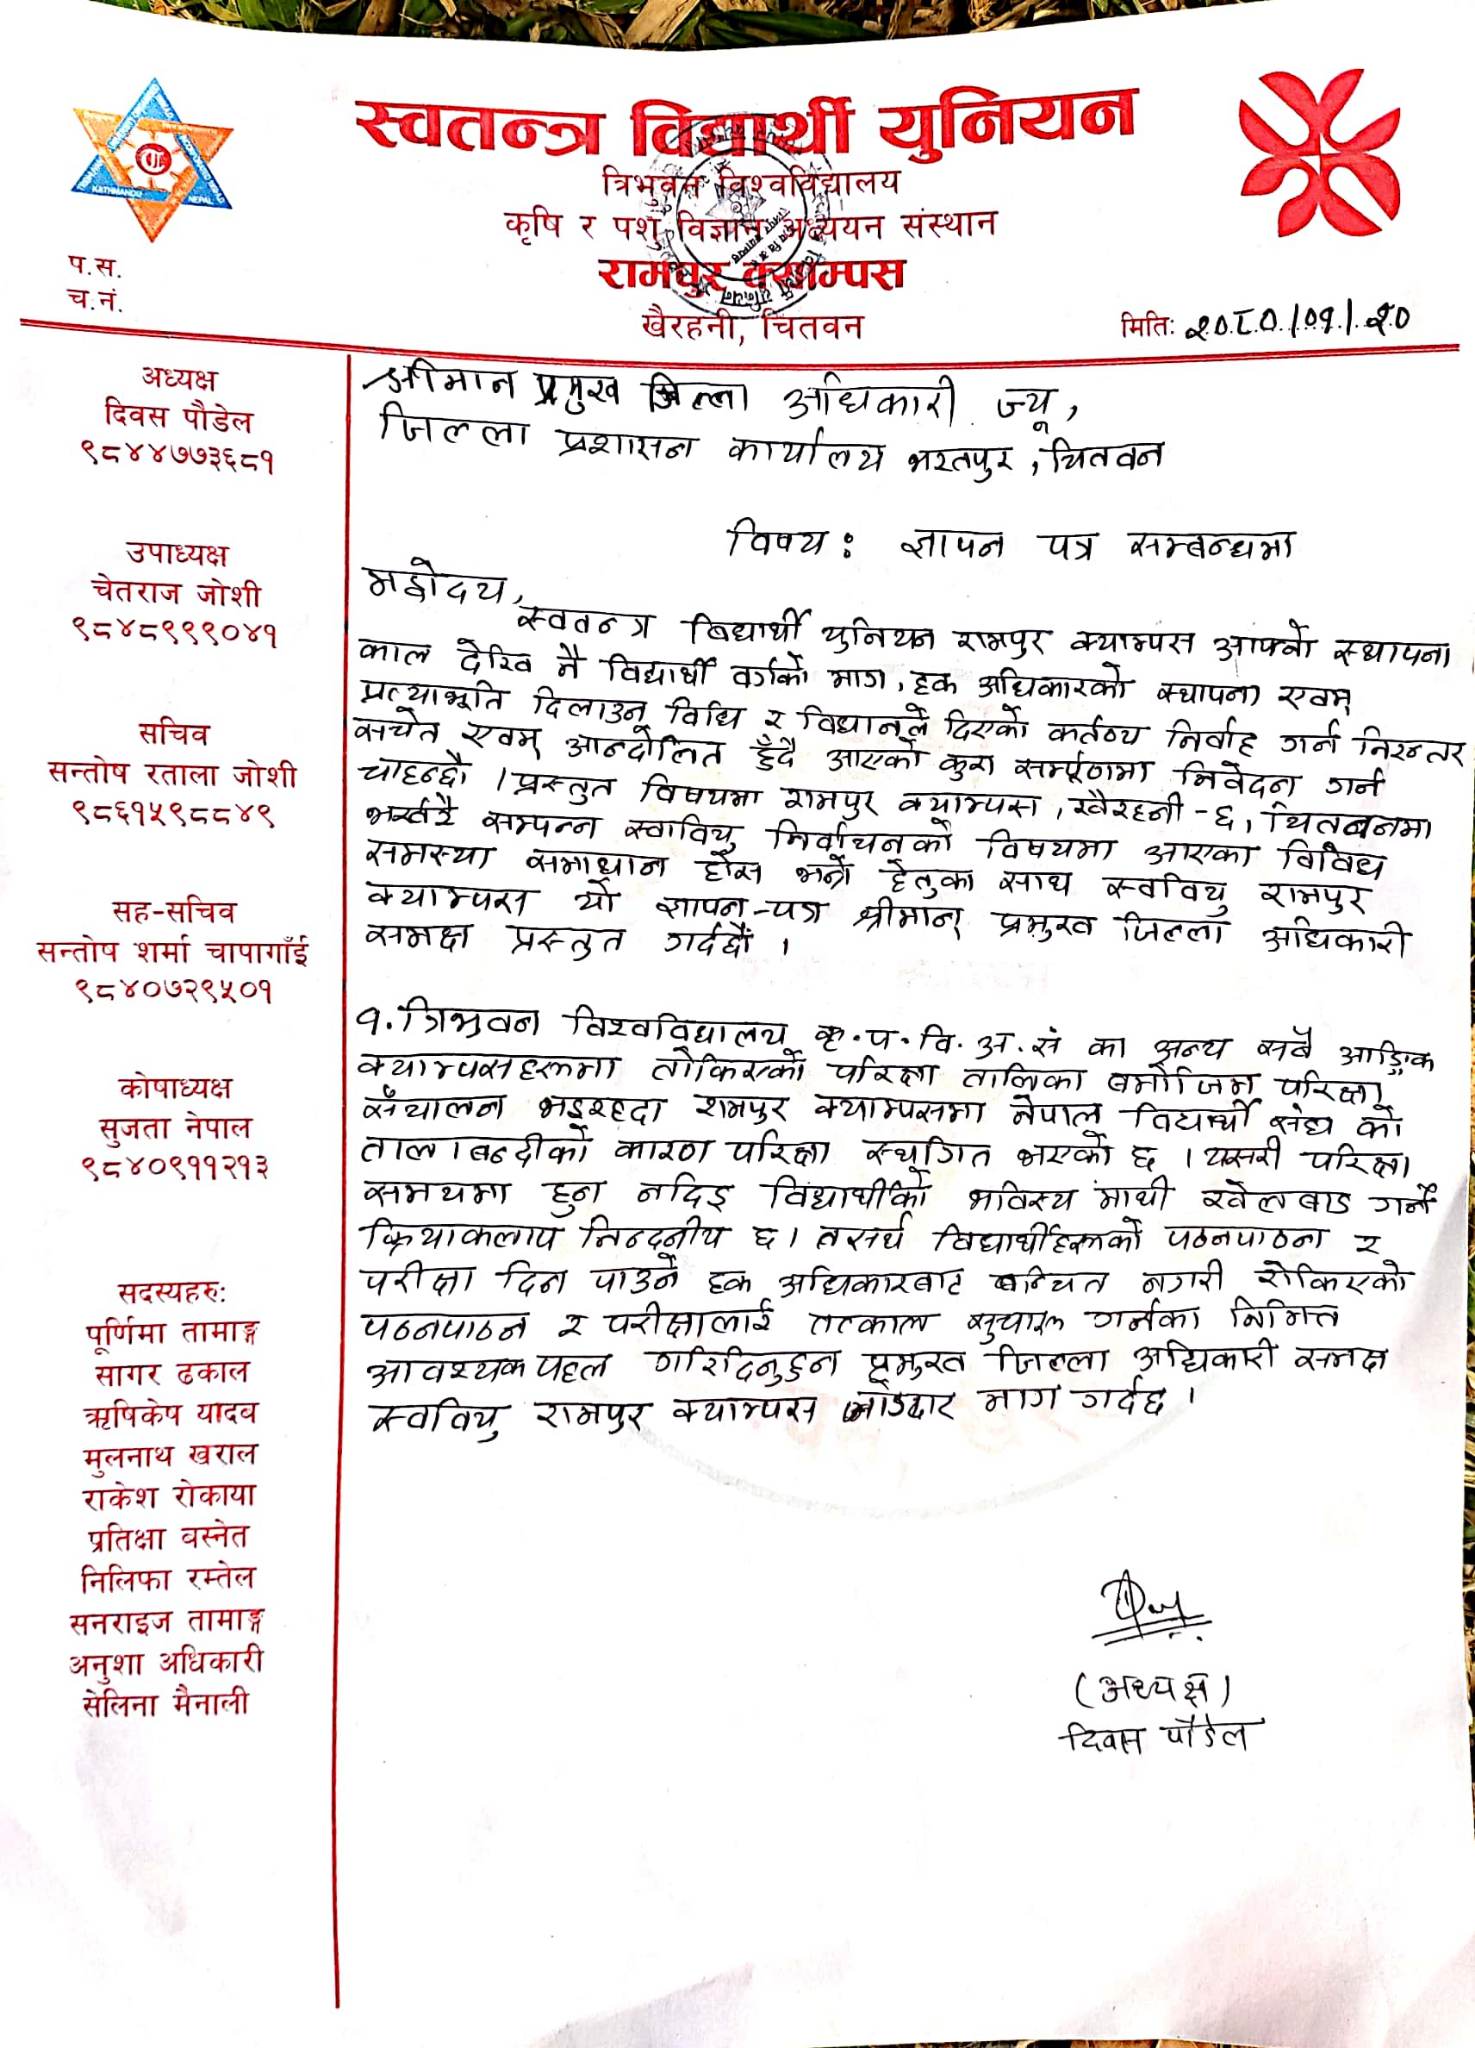 स्वतन्त्र विद्यार्थी युनियन
त्रिभुवन विश्वविद्यालय
कृषि र पशु विज्ञान अध्ययन संस्थान
रामपुर क्याम्पस
खैरहनी, चितवन
KATHMANDU
NEPAL
प.स.
च.नं.
मितिः २०८०/०१/२०
अध्यक्ष
दिवस पौडेल
९८४४७७३६८१
उपाध्यक्ष
चेतराज जोशी
९८४८९९९०४१
सचिव
सन्तोष रताला जोशी
९८६१५९८८४९
सह-सचिव
सन्तोष शर्मा चापागाँई
९८४०७२९५०१
कोषाध्यक्ष
सुजता नेपाल
९८४०९११२१३
सदस्यहरु:
पूर्णिमा तामाङ्ग
सागर ढकाल
ऋषिकेष यादव
मुलनाथ खराल
राकेश रोकाया
प्रतिक्षा वस्नेत
निलिफा रम्तेल
सनराइज तामाङ्ग
अनुशा अधिकारी
सेलिना मैनाली
श्रीमान प्रमुख जिल्ला अधिकारी ज्यू,
जिल्ला प्रशासन कार्यालय भरतपुर, चितवन
विषय: ज्ञापन पत्र सम्बन्धमा
महोदय,
स्वतन्त्र बिद्यार्थी युनियन रामपुर क्याम्पस आफ्नो स्थापना
काल देखि नै विद्यार्थी वर्गको माग, हक अधिकारको स्थापना एवम्
प्रत्याभूति दिलाउन विधि र विधानले दिएको कर्तव्य निर्वाह गर्न निरन्तर
सचेत एवम् आन्दोलित हुँदै आएको कुरा सम्पूर्णमा निवेदन गर्न
चाहन्छौ । प्रस्तुत विषयमा रामपुर क्याम्पस, खैरहनी-६, चितवनमा
भर्खरै सम्पन्न स्वावियु निर्वाचनको विषयमा आएका विविध
समस्या समाधान होस भन्ने हेतुका साथ स्ववियु रामपुर
क्याम्पस यो ज्ञापन-पत्र श्रीमान् प्रमुख जिल्ला अधिकारी
समक्ष प्रस्तुत गर्दछौं ।
१. त्रिभुवन विश्वविद्यालय कृ.प.वि.अ.सं का अन्य सबै आङ्गिक
क्याम्पसहरूमा तोकिएको परिक्षा तालिका बमोजिम परिक्षा
सँचालन भइरहदा रामपुर क्याम्पसमा नेपाल विद्यार्थी संघ को
तालाबन्दीको कारण परिक्षा स्थगित भएको छ । यसरी परिक्षा
समयमा हुन नदिइ विद्यार्थीको भविस्य माथी खेलबाड गर्ने
क्रियाकलाप निन्दनीय छ । तसर्थ विद्यार्थीहरूको पठनपाठना र
परीक्षा दिन पाउने हक अधिकारबाट बन्चित नगरी रोकिएको
पठनपाठन र परीक्षालाई तत्काल सुचारू गर्नका निमित्त
आवश्यक पहल गरिदिनुहुन प्रमुख जिल्ला अधिकारी समक्ष
स्ववियु रामपुर क्याम्पस जोडदार माग गर्दछ ।
(अध्यक्ष)
दिवस पौडेल